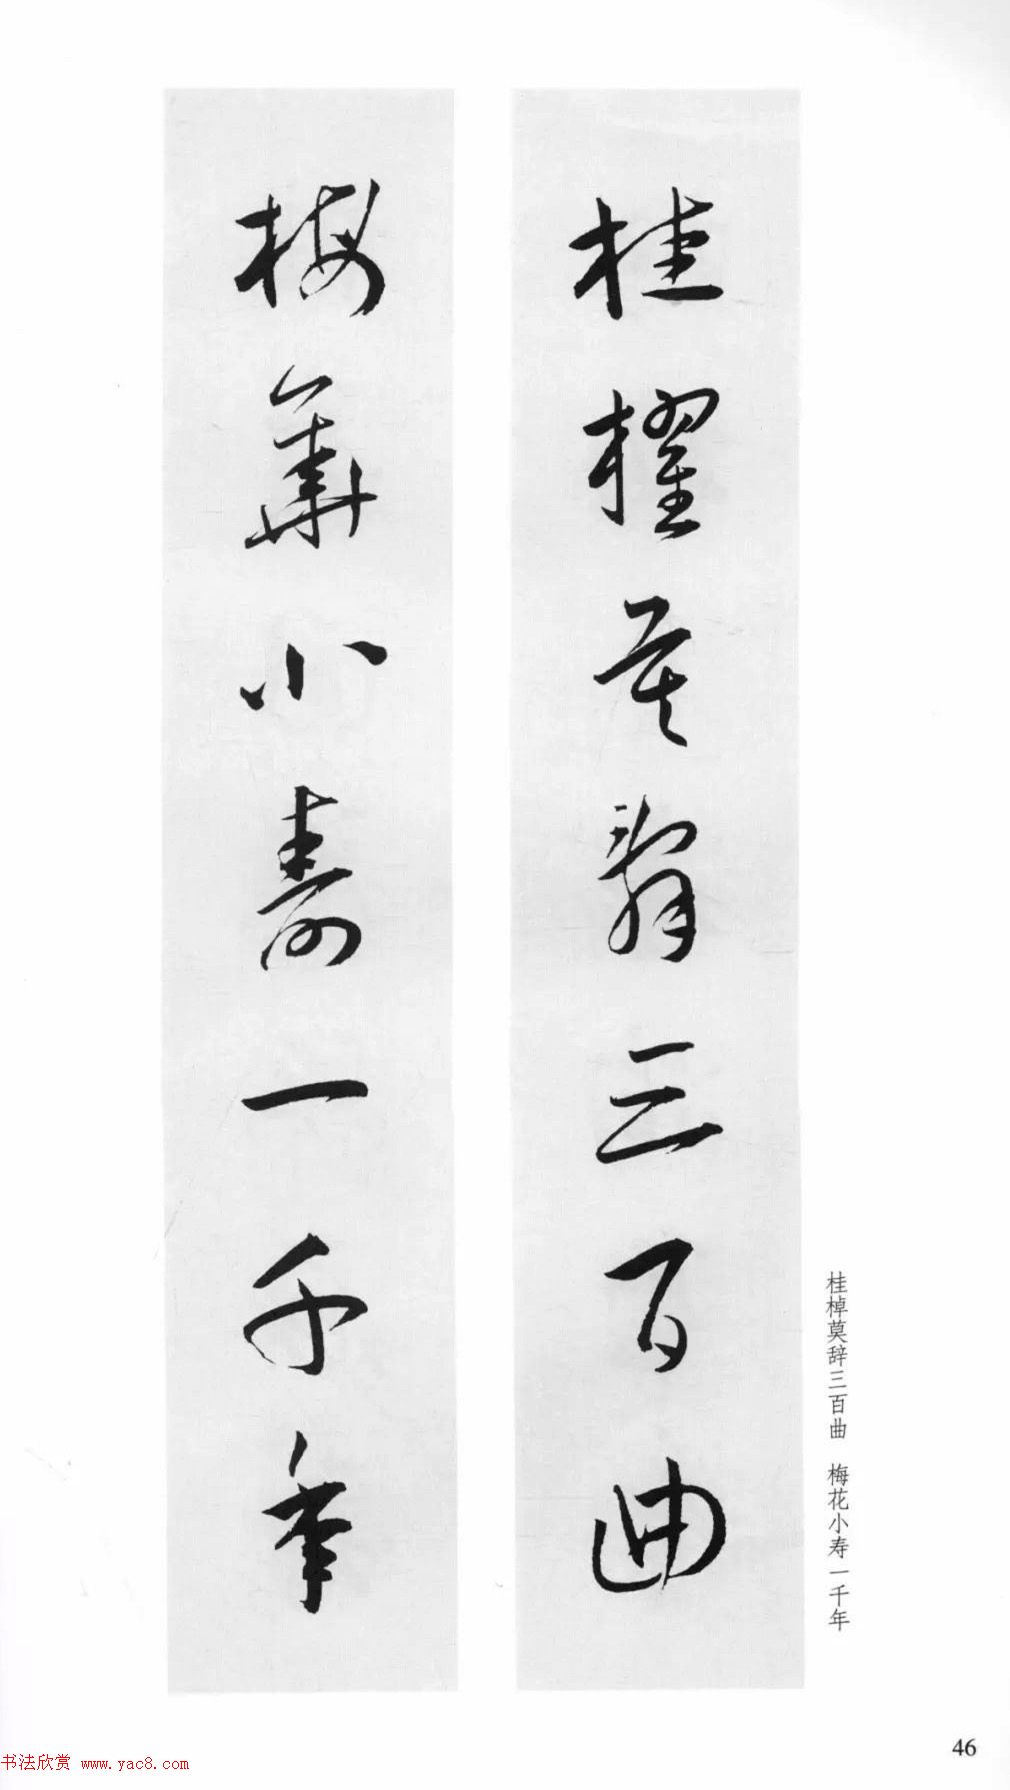 桂櫂莫辭三百曲
梅華小壽一千年
桂棹莫辞三百曲 梅花小寿一千年
46
书法欣赏 www.yac8.com